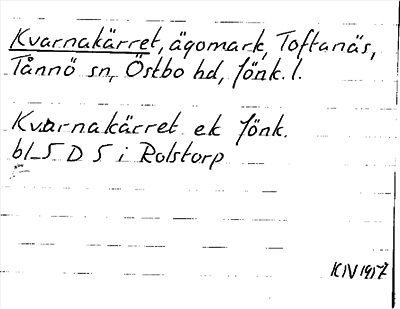 Kvarnakärret, ägomark, Toftanäs,
Tånnö sn, Östbo hd, Jönk. l.
Kvarnakärret ek Jönk.
bl 5 D 5 i Rolstorp
KIV 1957